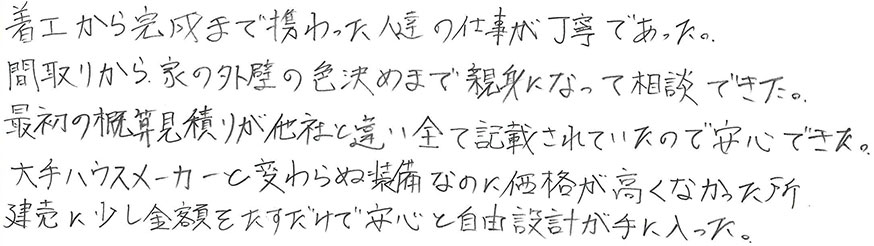 着工から完成まで携わった人達の仕事が丁寧であった。
間取りから家の外壁の色決めまで親身になって相談できた。
最初の概算見積りが他社と違い全て記載されていたので安心できた。
大手ハウスメーカーと変わらぬ装備なのに価格が高くなかった所
建売に少し金額をたすだけで安心と自由設計が手に入った。